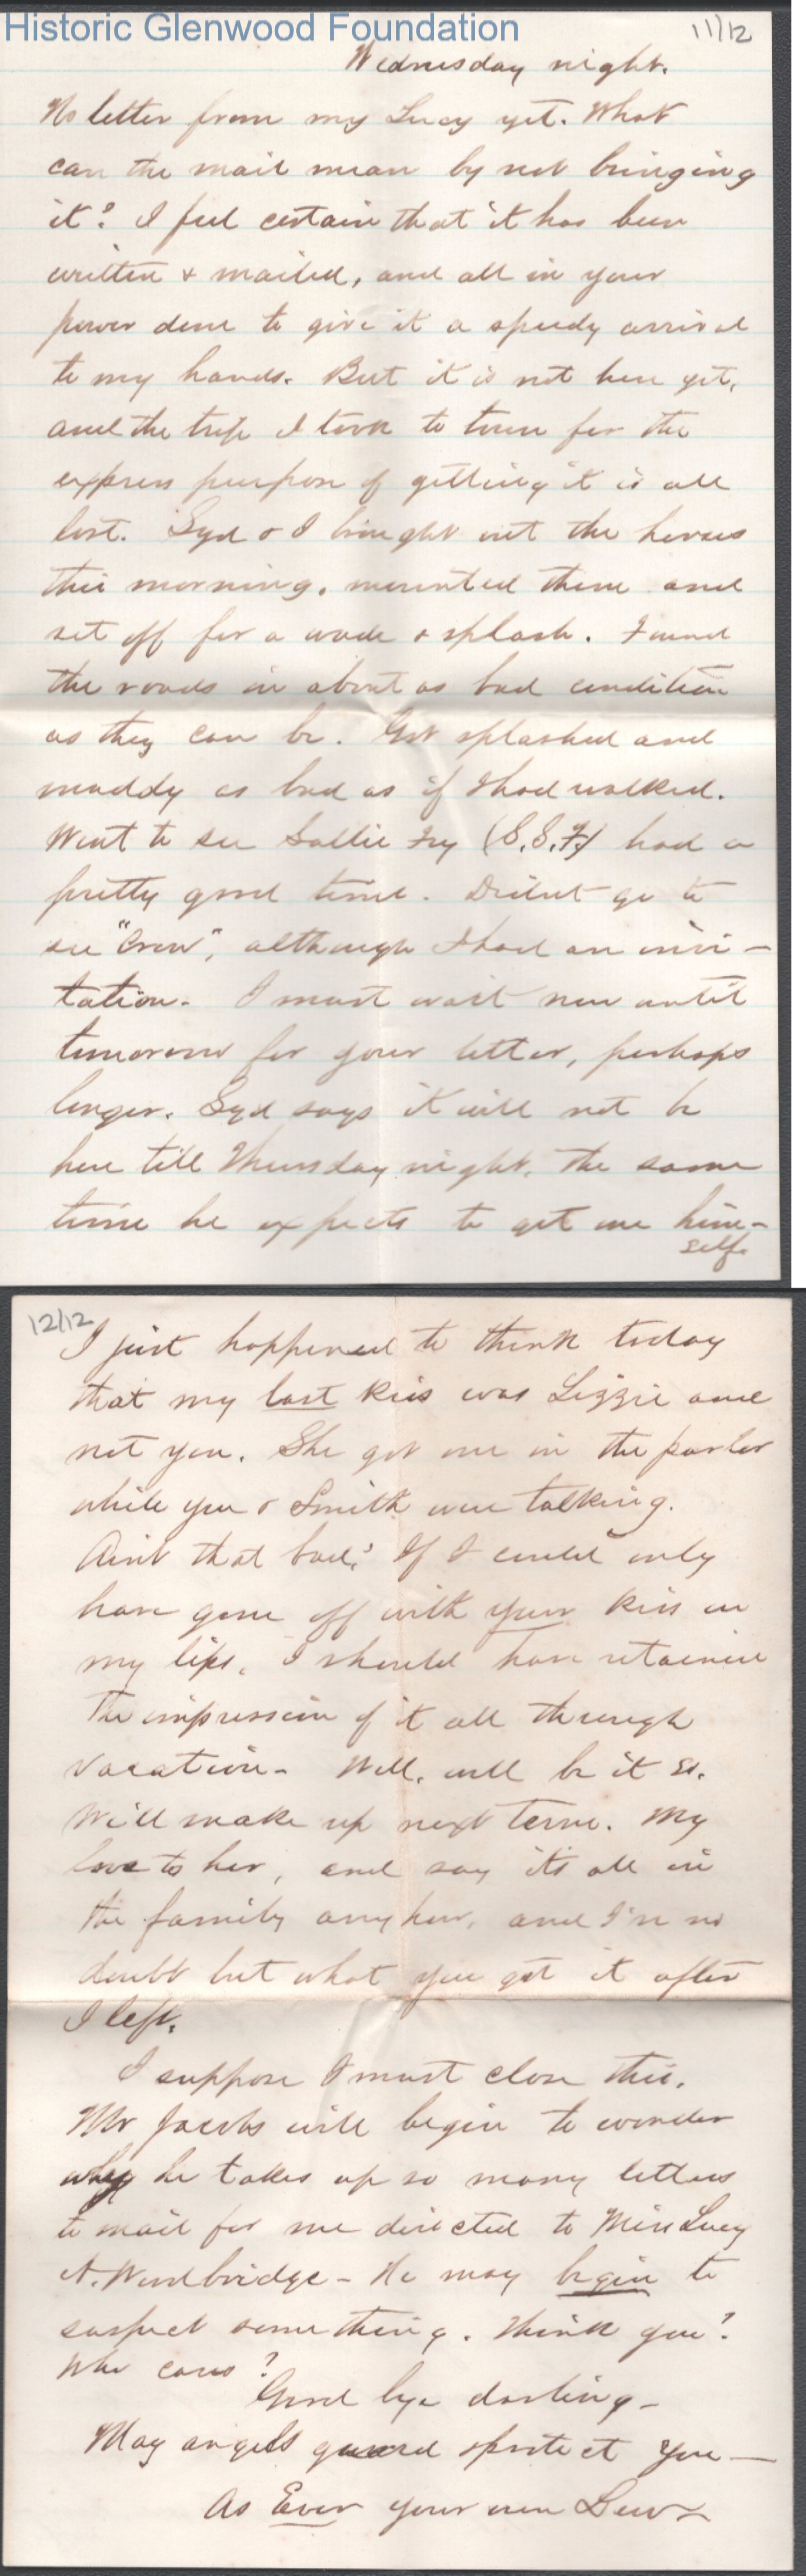 Historic Glenwood Foundation
11/12
Wednesday night.
No letter from my Lucy yet. What
can the mail mean by not bringing
it? I feel certain that it has been
written & mailed, and all in your
power done to give it a speedy arrival
to my hands. But it is not here yet,
and the trip I took to town for the
express purpose of getting it is all
lost. Syd & I brought out the horses
this morning, mounted them and
set off for a wade & splash. Found
the roads in about as bad condition
as they can be. Got splashed and
muddy as bad as if I had walked.
Went to see Sallie Fry (S.S.F.) had a
pretty good time. Didn't go to
see "Crow", although I had an invi-
tation. I must wait now until
tomorrow for your letter, perhaps
longer. Syd says it will not be
here till Thursday night. The same
time he expects to get one him-
self.
12/12
I just happened to think today
that my last kiss was Lizzie and
not you. She got one in the parlor
while you & Smith were talking.
Aint that bad? If I could only
have gone off with your kiss on
my lips, I should have retained
the impression of it all through
vacation - Well, well be it so.
We'll make up next term. My
love to her, and say its all in
the family anyhow, and I've no
doubt but what you got it after
I left.
I suppose I must close this.
Mr Jacobs will begin to wonder
why he takes up so many letters
to mail for me directed to Miss Lucy
A. Woodbridge - He may begin to
suspect something. Think you?
Who cares?
Good bye darling -
May angels guard & protect you -
As Ever your own Dew